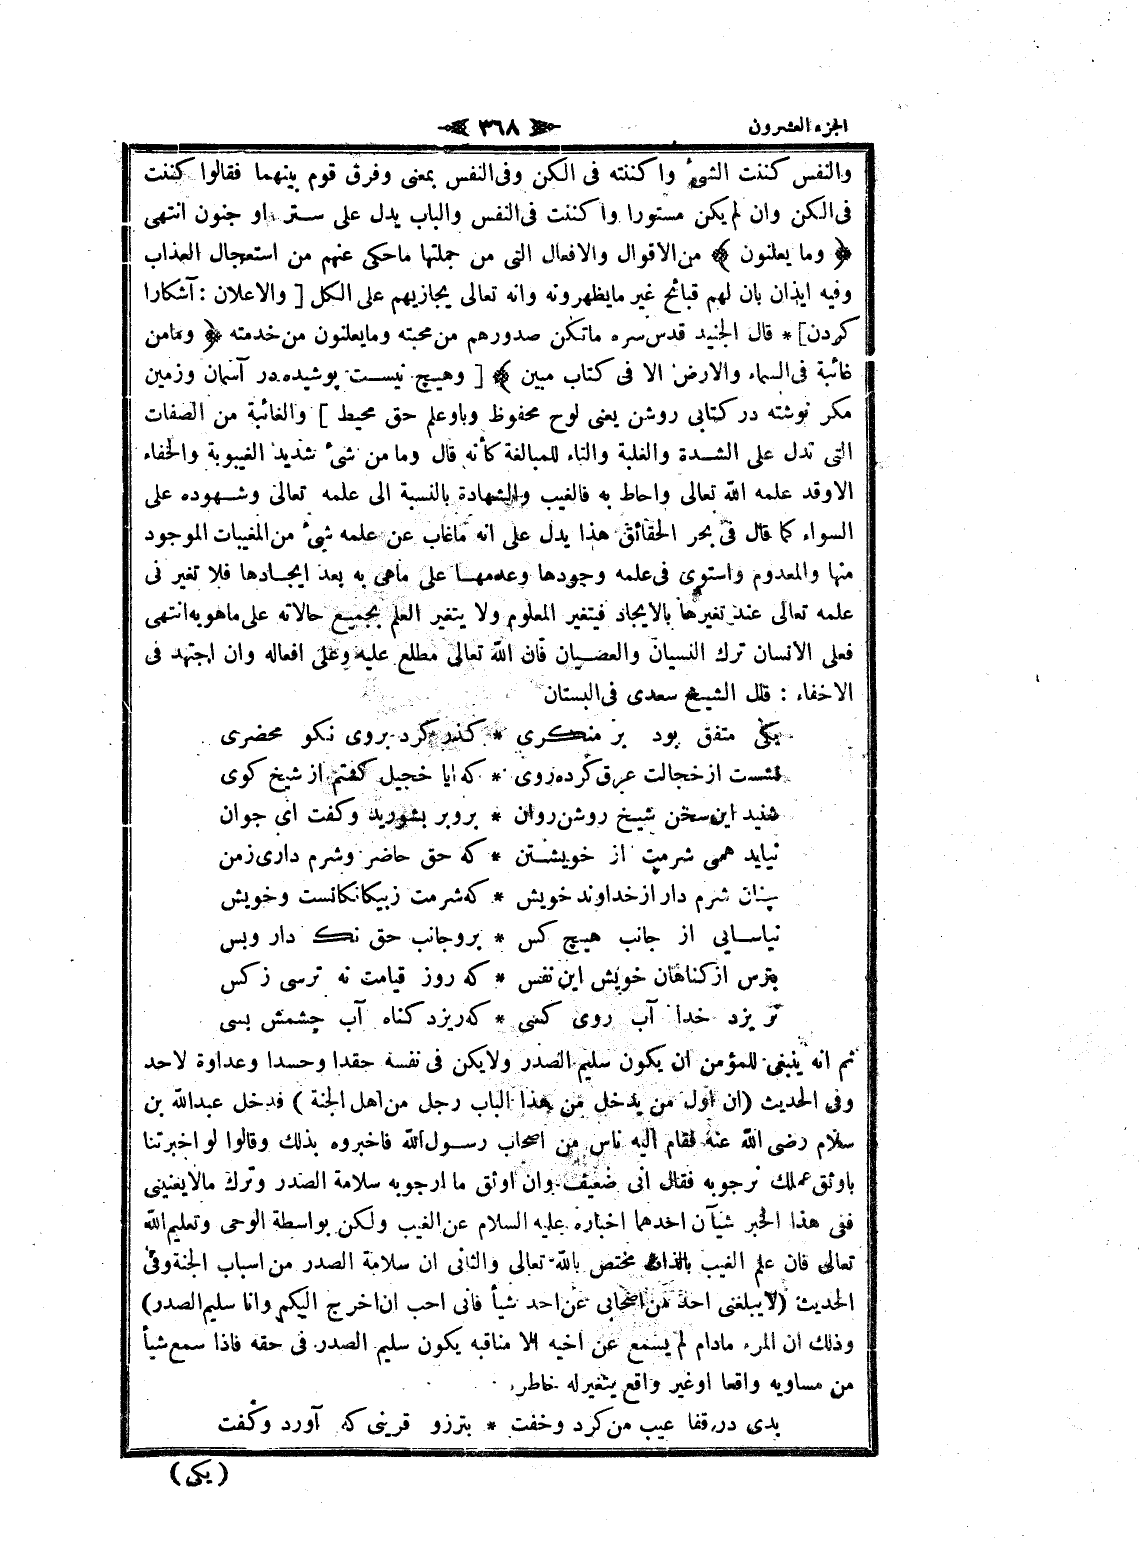 الجزء العشرون
٣٦٨
والنفس كننت الشئ واكننته فى الكن وفى النفس بمعنى وفرق قوم بينهما فقالوا كننت
فى الكن وان لم يكن مستورا واكننت فى النفس والباب يدل على ستر او جنون انتهى
﴿ وما يعلنون ﴾ من الاقوال والافعال التى من جملتها ماحكى عنهم من استعجال العذاب
وفيه ايذان بان لهم قبائح غير مايظهرونه وانه تعالى يجازيهم على الكل [ والاعلان : آشكارا
كردن ] * قال الجنيد قدس سره ماتكن صدورهم من محبته ومايعلنون من خدمته ﴿ ومامن
غائبة فى السماء والارض الا فى كتاب مبين ﴾ [ وهيچ نيست پوشيده در آسمان وزمين
مكر نوشته در كتابى روشن يعنى لوح محفوظ وباوعلم حق محيط ] والغائبة من الصفات
التى تدل على الشدة والغلبة والتاء للمبالغة كأنه قال وما من شئ شديد الغيبوبة والخفاء
الاوقد علمه الله تعالى واحاط به فالغيب والشهادة بالنسبة الى علمه تعالى وشهوده على
السواء كما قال فى بحر الحقائق هذا يدل على انه ماغاب عن علمه شئ من المغيبات الموجود
منها والمعدوم واستوى فى علمه وجودها وعدمها على ماهى به بعد ايجادها فلا تغير فى
علمه تعالى عند تغيرها بالايجاد فيتغير المعلوم ولا يتغير العلم بجميع حالاته على ماهو به انتهى
فعلى الانسان ترك النسيان والعصيان فان الله تعالى مطلع عليه وعلى افعاله وان اجتهد فى
الاخفاء : قال الشيخ سعدى فى البستان
يكى متفق بود بر منكرى * كذر كرد بروى نكو محضرى
نشست از خجالت عرق كرده روى * كه ايا خجيل كفتم از شيخ كوى
شنيد اين سخن شيخ روشن روان * بروبر بشوريد وكفت اى جوان
نيايد همى شرمت از خويشتن * كه حق حاضر وشرم دارى زمن
چنان شرم دار از خداوند خويش * كه شرمت زبيكانكانست وخويش
نياسايى از جانب هيچ كس * برو جانب حق نكه دار وبس
بترس از كناهان خويش اين نفس * كه روز قيامت نه ترسى زكس
نريزد خدا آب روى كسى * كه ريزد كناه آب چشمش بسى
ثم انه ينبغى للمؤمن ان يكون سليم الصدر ولايكن فى نفسه حقدا وحسدا وعداوة لاحد
وفى الحديث (ان اول من يدخل من هذا الباب رجل من اهل الجنة ) فدخل عبدالله بن
سلام رضى الله عنه فقام اليه ناس من اصحاب رسول الله فاخبروه بذلك وقالوا لو اخبرتنا
باوثق عملك نرجوبه فقال انى ضعيف وان اوثق ما ارجوبه سلامة الصدر وترك مالايعنينى
ففى هذا الخبر شيآن احدهما اخباره عليه السلام عن الغيب ولكن بواسطة الوحى وتعليم الله
تعالى فان علم الغيب بالذات مختص بالله تعالى والثانى ان سلامة الصدر من اسباب الجنة وفى
الحديث (لايبلغنى احد من اصحابى عن احد شيأ فانى احب ان اخرج اليكم وانا سليم الصدر)
وذلك ان المرء مادام لم يسمع عن اخيه الا مناقبه يكون سليم الصدر فى حقه فاذا سمع شيأ
من مساويه واقعا اوغير واقع يتغيرله خاطره
بدى در قفا عيب من كرد وخفت * بترزو قرينى كه آورد وكفت
( يكى )